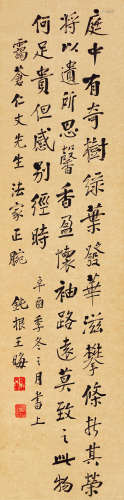 庭中有奇樹綠葉發華滋攀條折其榮
將以遺所思馨香盈懷袖路遠莫致之此物
何足貴但感別經時 辛酉季冬之月書上
靄蒼仁丈先生法家正腕 鈍根王晦